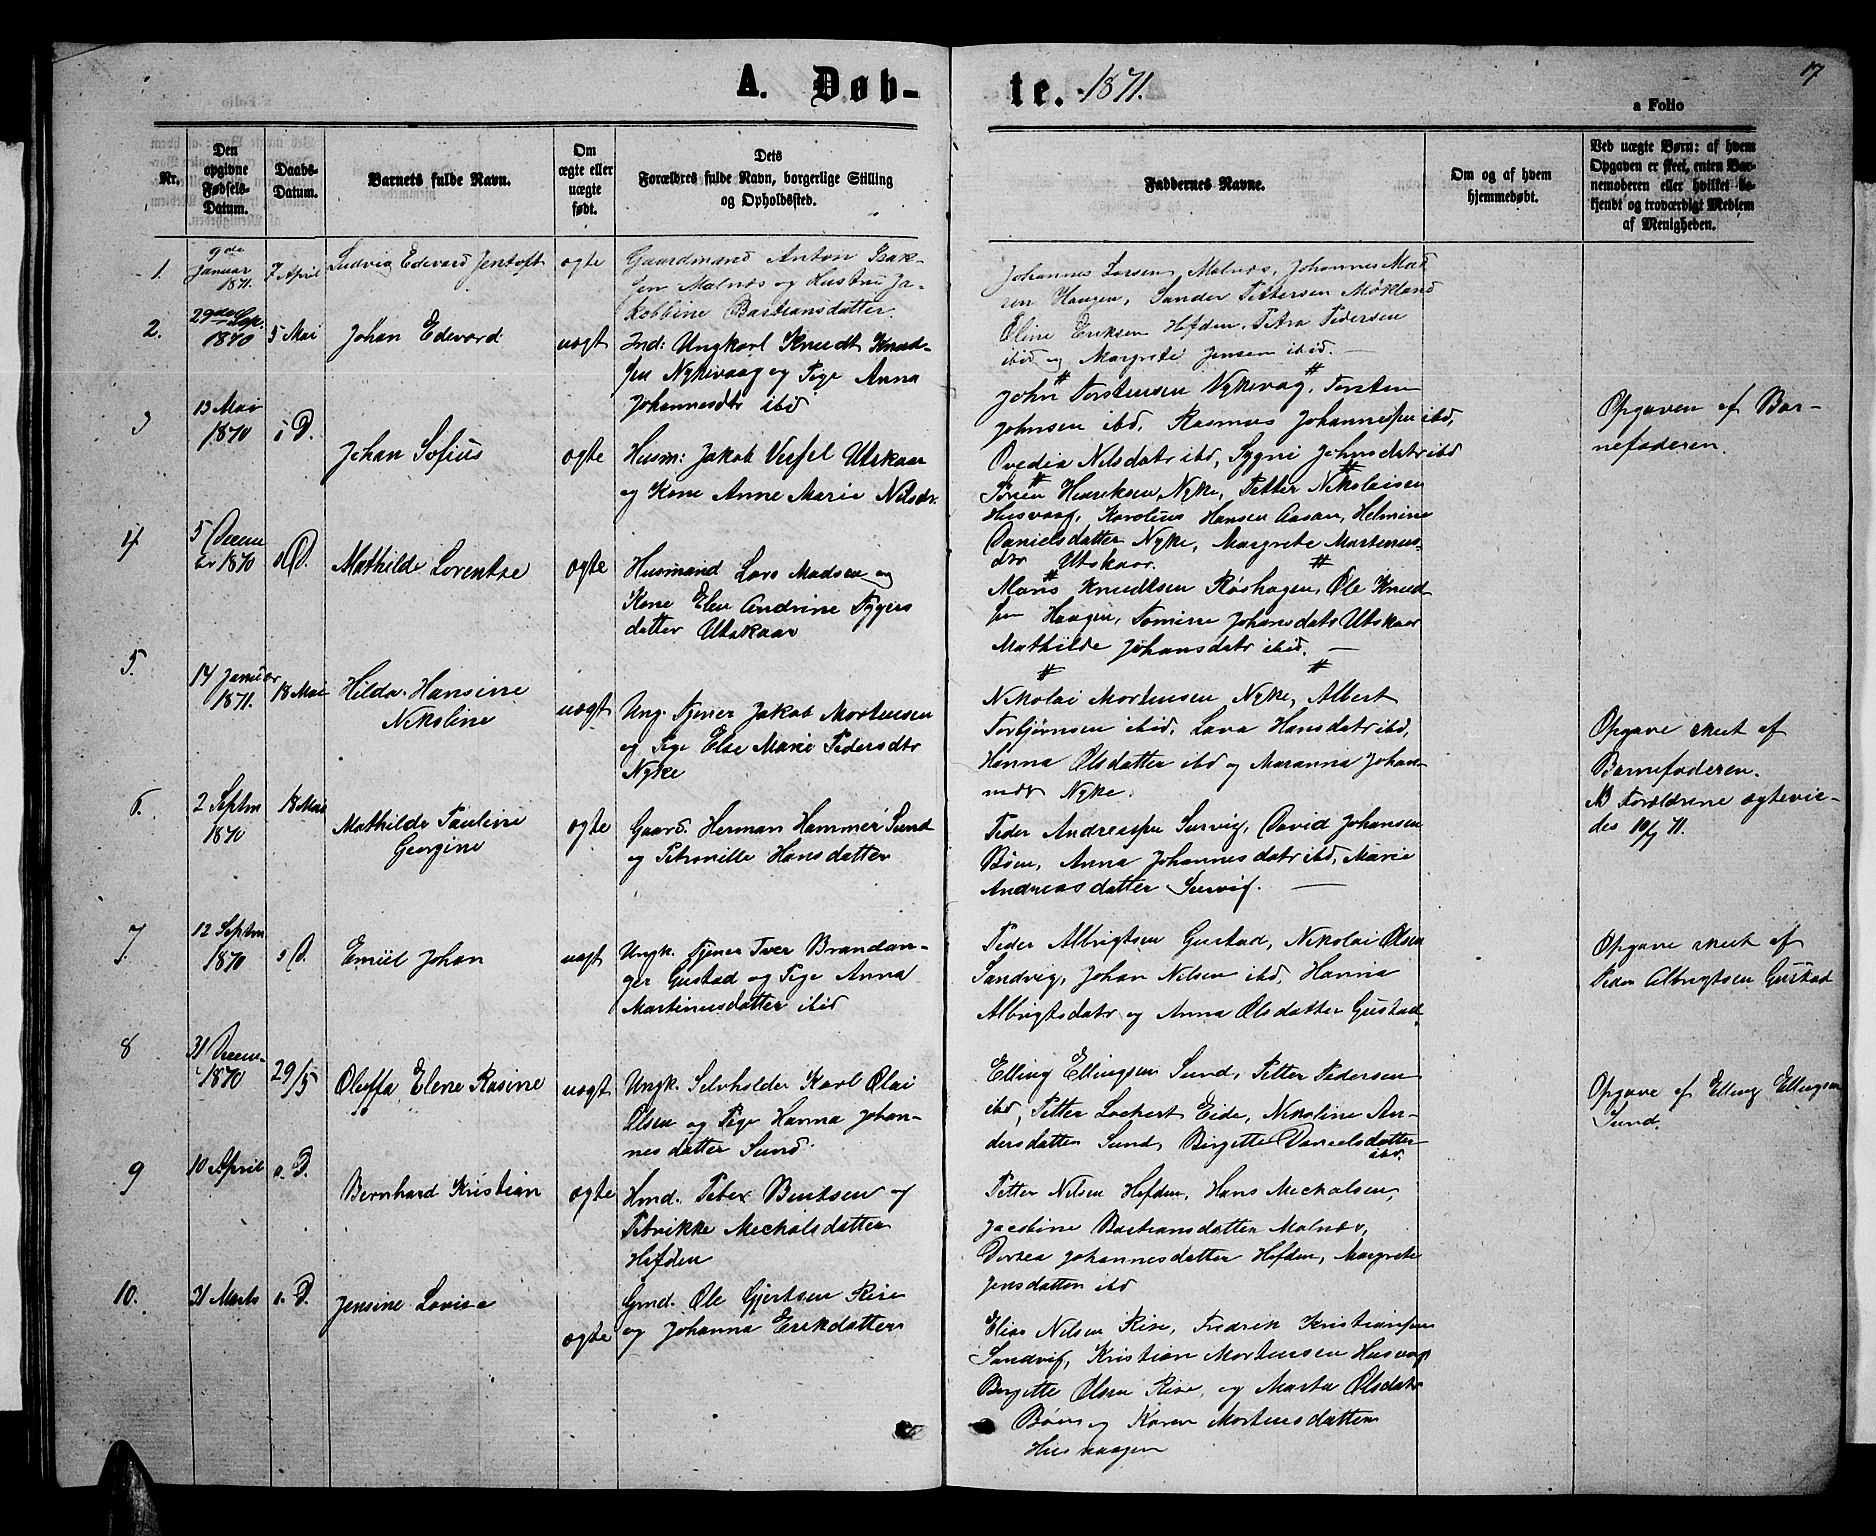 A. Døb-
te. 1871.
17
a Folio
Nr.
Den opgivne Fødsels-Datum.
Daabs-Datum.
Barnets fulde Navn.
Om ægte eller uægte født.
Dets
Forældres fulde Navn, borgerlige Stilling
og Opholdssted.
Faddernes Navne.
Om og af hvem
hjemmedøbt.
Ved uægte Børn: af hvem
Opgaven er skeet, enten Bar-
nemoderen eller hvilket be-
kjendt og troværdigt Medlem
af Menigheden.
1.
9de
Januar
1871.
7 April
Ludvig Edevard Jentoft
ægte
Gaardmand Anton Isak-
sen Malnæs og Hustru Ja-
kobbine Bastiansdatter.
Johannes Larsen Malnæs, Johannes Mat
sen Haugen, Sander Pettersen Mökland
Eline Eriksen Hefden, Petra Pedersen
ibid og Margrete Jensen ibid. —
2.
29de Sep.
1870
5 Mai
Johan Edevard
uægt
Ind: Ungkarl Knudt Knud-
sen Nykevaag og Pige Anna
Johannesdtr ibid
John Torstensen Nykevag, Torsten
Johnsen ibd, Rasmus Johannessen ibd,
Ovedia Nilsdatr ibd, Sygni Johnsdatr ibd
Opgaven af Bar-
nefaderen.
3
13 Mai
1870
s D.
Johan Sofius
ægte
Husm: Jakob Vessel Utskaar
og Kone Anne Marie Nilsdr.
Sören Henriksen Nyke, Petter Nikolaisen
Husvaag, Karolius Hansen Aasan, Helmine
Danielsdatter Nyke, Margrete Martinus-
dtr Utskaar.
4
5 Decem
br 1870
s D.
Mathilde Lorentse
ægte
Husmand Lars Madsen og
Kone Elen Andrine Sygers
datter Utskaar
Mons Knudtsen Röshagen, Ole Knud
sen Haagen, Tomine Johansdatr Utskaar
Mathilde Johansdatr ibid. —
5.
14 Januar
1871.
18 Mai
Hilda Hansine
Nikoline
uægt
Ung. Tjener Jakob Mortensen
og Pige Else Marie Pedersdtr
Nyke
Nikolai Mortensen Nyke, Albert
Torbjørnsen ibid, Lava Hansdatr ibd,
Hanna Olsdatter ibd og Maranna Johan-
Nyke.
Opgave skeet af
Barnefaderen.
NB Forældrene ægtevie-
des 10/7 71.
6.
2 Septm
1870
18 Mai
Mathilde Pauline
Georgine
ægte
Gaard. Herman Hammer Sund
og Petronille Hansdatter
Peder Andreassen Survig, David Johansen
Böen, Anna Johannesdatr ibd, Marie
Andreasdatter Survig. —
7.
12 Septm
1870
s D.
Emiel Johan
uægt
Ungk. Tjener Iver Brandan-
ger Gustad og Pige Anna
Martinusdatter ibid
Peder Albrigtsen Gustad, Nikolai Olsen
Sandvig, Johan Nilsen ibd, Hanna
Albrigtsdatr og Anna Olsdatter Gustad.
Opgave skeet af
Peder Albrigtsen Gustad
8
31 Decem-
1870
29/5
Oluffa Elene Rasine
uægt
Ungk. Selvholder Karl Olai
Olsen og Pige Hanna Johan-
nesdatter Sund.
Elling Ellingsen Sund, Petter Pedersen
ibd, Petter Lockert Eide, Nikoline An-
dersdatter Sund, Birgitte Danielsdatter
ibd.
Opgave af Elling Ellingsen
Sund.
9
10 April
s. D.
Bernhard Kristian
ægte
Hmd. Peter Bentsen og
Petrikke Meckalsdatter
Hefden
Petter Nilsen Hefden, Hans Meckalsen,
Jacobine Bastiansdatter Malnæs,
Dorsea Johannesdatter Hefden, Margrete
Jensdatter ibd
10.
31 Marts
s. D.
Jensine Lovise
ægte
Gmd. Ole Gjertsen Rise
og Johanna Erikdatter
Elias Nilsen Rise, Fredrik Kristiansen
Sandvig, Kristian Mortensen Husvag
Birgitte Olsen Rise, og Marta Olsdatr
Böen og Karen Mortensdatter
Husvaagen